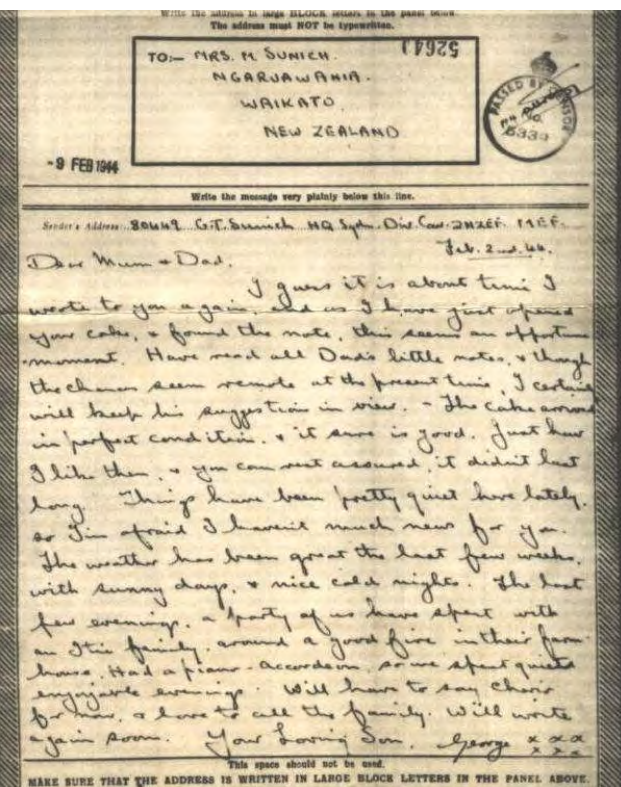 Write the address in large BLOCK letters in the panel below.
The address must NOT be typewritten.
52640
TO:— MRS. M. SUNICH.
NGARUAWAHIA.
WAIKATO,
NEW ZEALAND
PASSED BY CENSOR
NO.
- 9 FEB 1944
Write the message very plainly below this line.
Sender's Address: 80449 G.T. Sunich HQ Sqdn. Div. Cav. 2NZEF. MEF.
Feb. 2nd. 44.
Dear Mum & Dad.
I guess it is about time I
wrote to you again, and as I have just opened
your cake, & found the note, this seems an opportune
moment. Have read all Dad's little notes, & though
the chances seem remote at the present time, I certainly
will keep his suggestion in view. - The cake arrived
in perfect condition. & it sure is good. Just how
I like them, & you can rest assured, it didn't last
long. Things have been pretty quiet here lately.
so I'm afraid I haven't much news for you.
The weather has been great the last few weeks,
with sunny days, & nice cold nights. The last
few evenings, a party of us have spent with
an Itie family, around a good fire in their farm-
house. Had a piano-accordeon, so we spent quite
enjoyable evenings. Will have to say cheerio
for now, & love to all the family. Will write
again soon. Your Loving Son, George x x x
x x x
This space should not be used.
MAKE SURE THAT THE ADDRESS IS WRITTEN IN LARGE BLOCK LETTERS IN THE PANEL ABOVE.